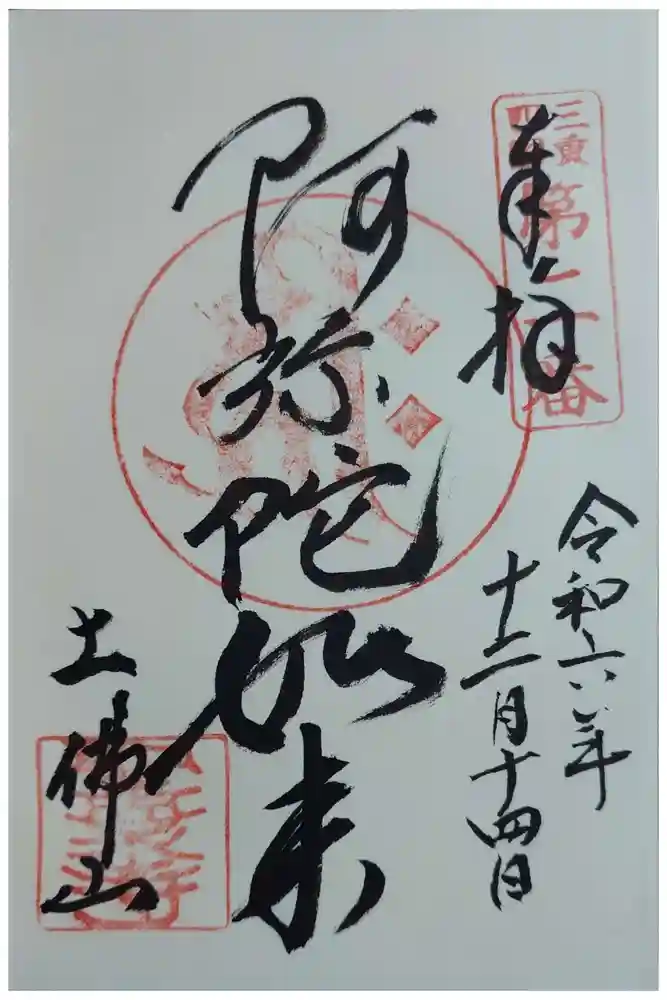 三重
四国
第二十番
奉拝
令和六年
十二月十四日
阿弥陀如来
土佛山